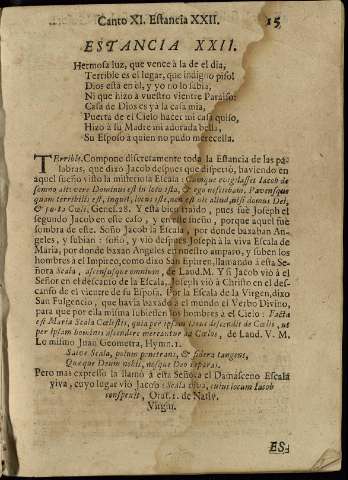 Canto XI. Estancia XXII.
15
ESTANCIA XXII.
Hermosa luz, que vence à la de el dia,
Terrible es el lugar, que indigno piso!
Dios està en el, y yo no lo sabia,
Ni que hizo à vuestro vientre Paraiso:
Casa de Dios es yà la casa mia,
Puerta de el Cielo hacer mi casa quiso,
Hizo à su Madre mi adorada bella,
Su Esposo à quien no pudo merecella.
TErrible. Compone discretamente toda la Estancia de las pa-
labras, que dixo Jacob despues que dispertò, haviendo en
aquel sueño visto la misteriosa Escala: Cumque evigilasset Iacob de
somno ait: vere Dominus est in loco isto, & ego nesciebam. Pavensque
quam terribilis est, inquit, locus iste, non est hic aliud, nisi domus Dei,
& porta Cœli, Genes. 28. Y està bien traìdo, pues fuè Joseph el
segundo Jacob en este caso, y en este sueño, porque aquel fuè
sombra de este. Soñò Jacob la Escala, por donde baxaban An-
geles, y subian: soñò, y viò despues Joseph à la viva Escala de
Maria, por donde baxan Angeles en nuestro amparo, y suben los
hombres à el Impireo, como dixo San Epiren, llamando à esta Se-
ñora Scala, ascensusque omnium, de Laud. M. Y si Jacob viò à el
Señor en el descanso de la Escala, Joseph viò à Christo en el des-
canso de el vientre de su Esposa. Por la Escala de la Virgen, dixo
San Fulgencio, que havia baxado à el mundo el Verbo Divino,
para que por ella misma subiessen los hombres à el Cielo: Facta
est Maria Scala Cœlestis, quia per ipsam Deus descendit de Cœlis, ut
per ipsam homines ascendere mereantur ad Cœlos, de Laud. V. M.
Lo mismo Juan Geometra, Hymn. 1.
Salve Scala, polum penetrans, & sidera tangens,
Quæque Deum nobis, nosque Deo reparas.
Pero mas expresso la llamò à esta Señora el Damasceno Escala
viva, cuyo lugar viò Jacob: Scala viva, cuius locum Iacob
conspexit, Orat. 1. de Nativ.
Virgin.
ES-